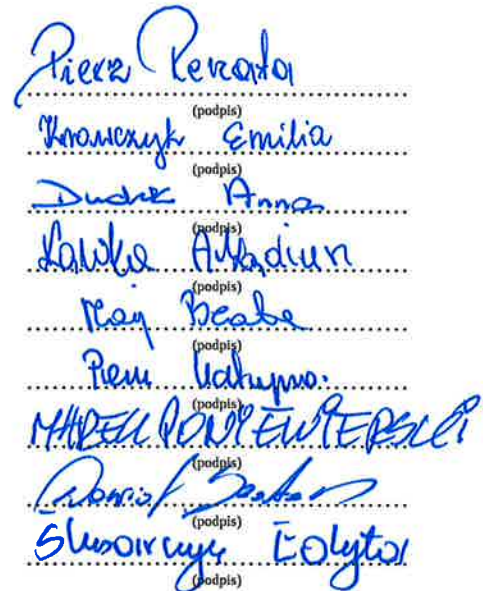 Pierz Renata
(podpis)
Krawczyk Emilia
(podpis)
Dudek Anna
(podpis)
Ławka Arkadiusz
(podpis)
Maj Beata
(podpis)
(podpis)
MAREK PONIEWIERSKI
(podpis)
(podpis)
Ślusarczyk Edyta
(podpis)